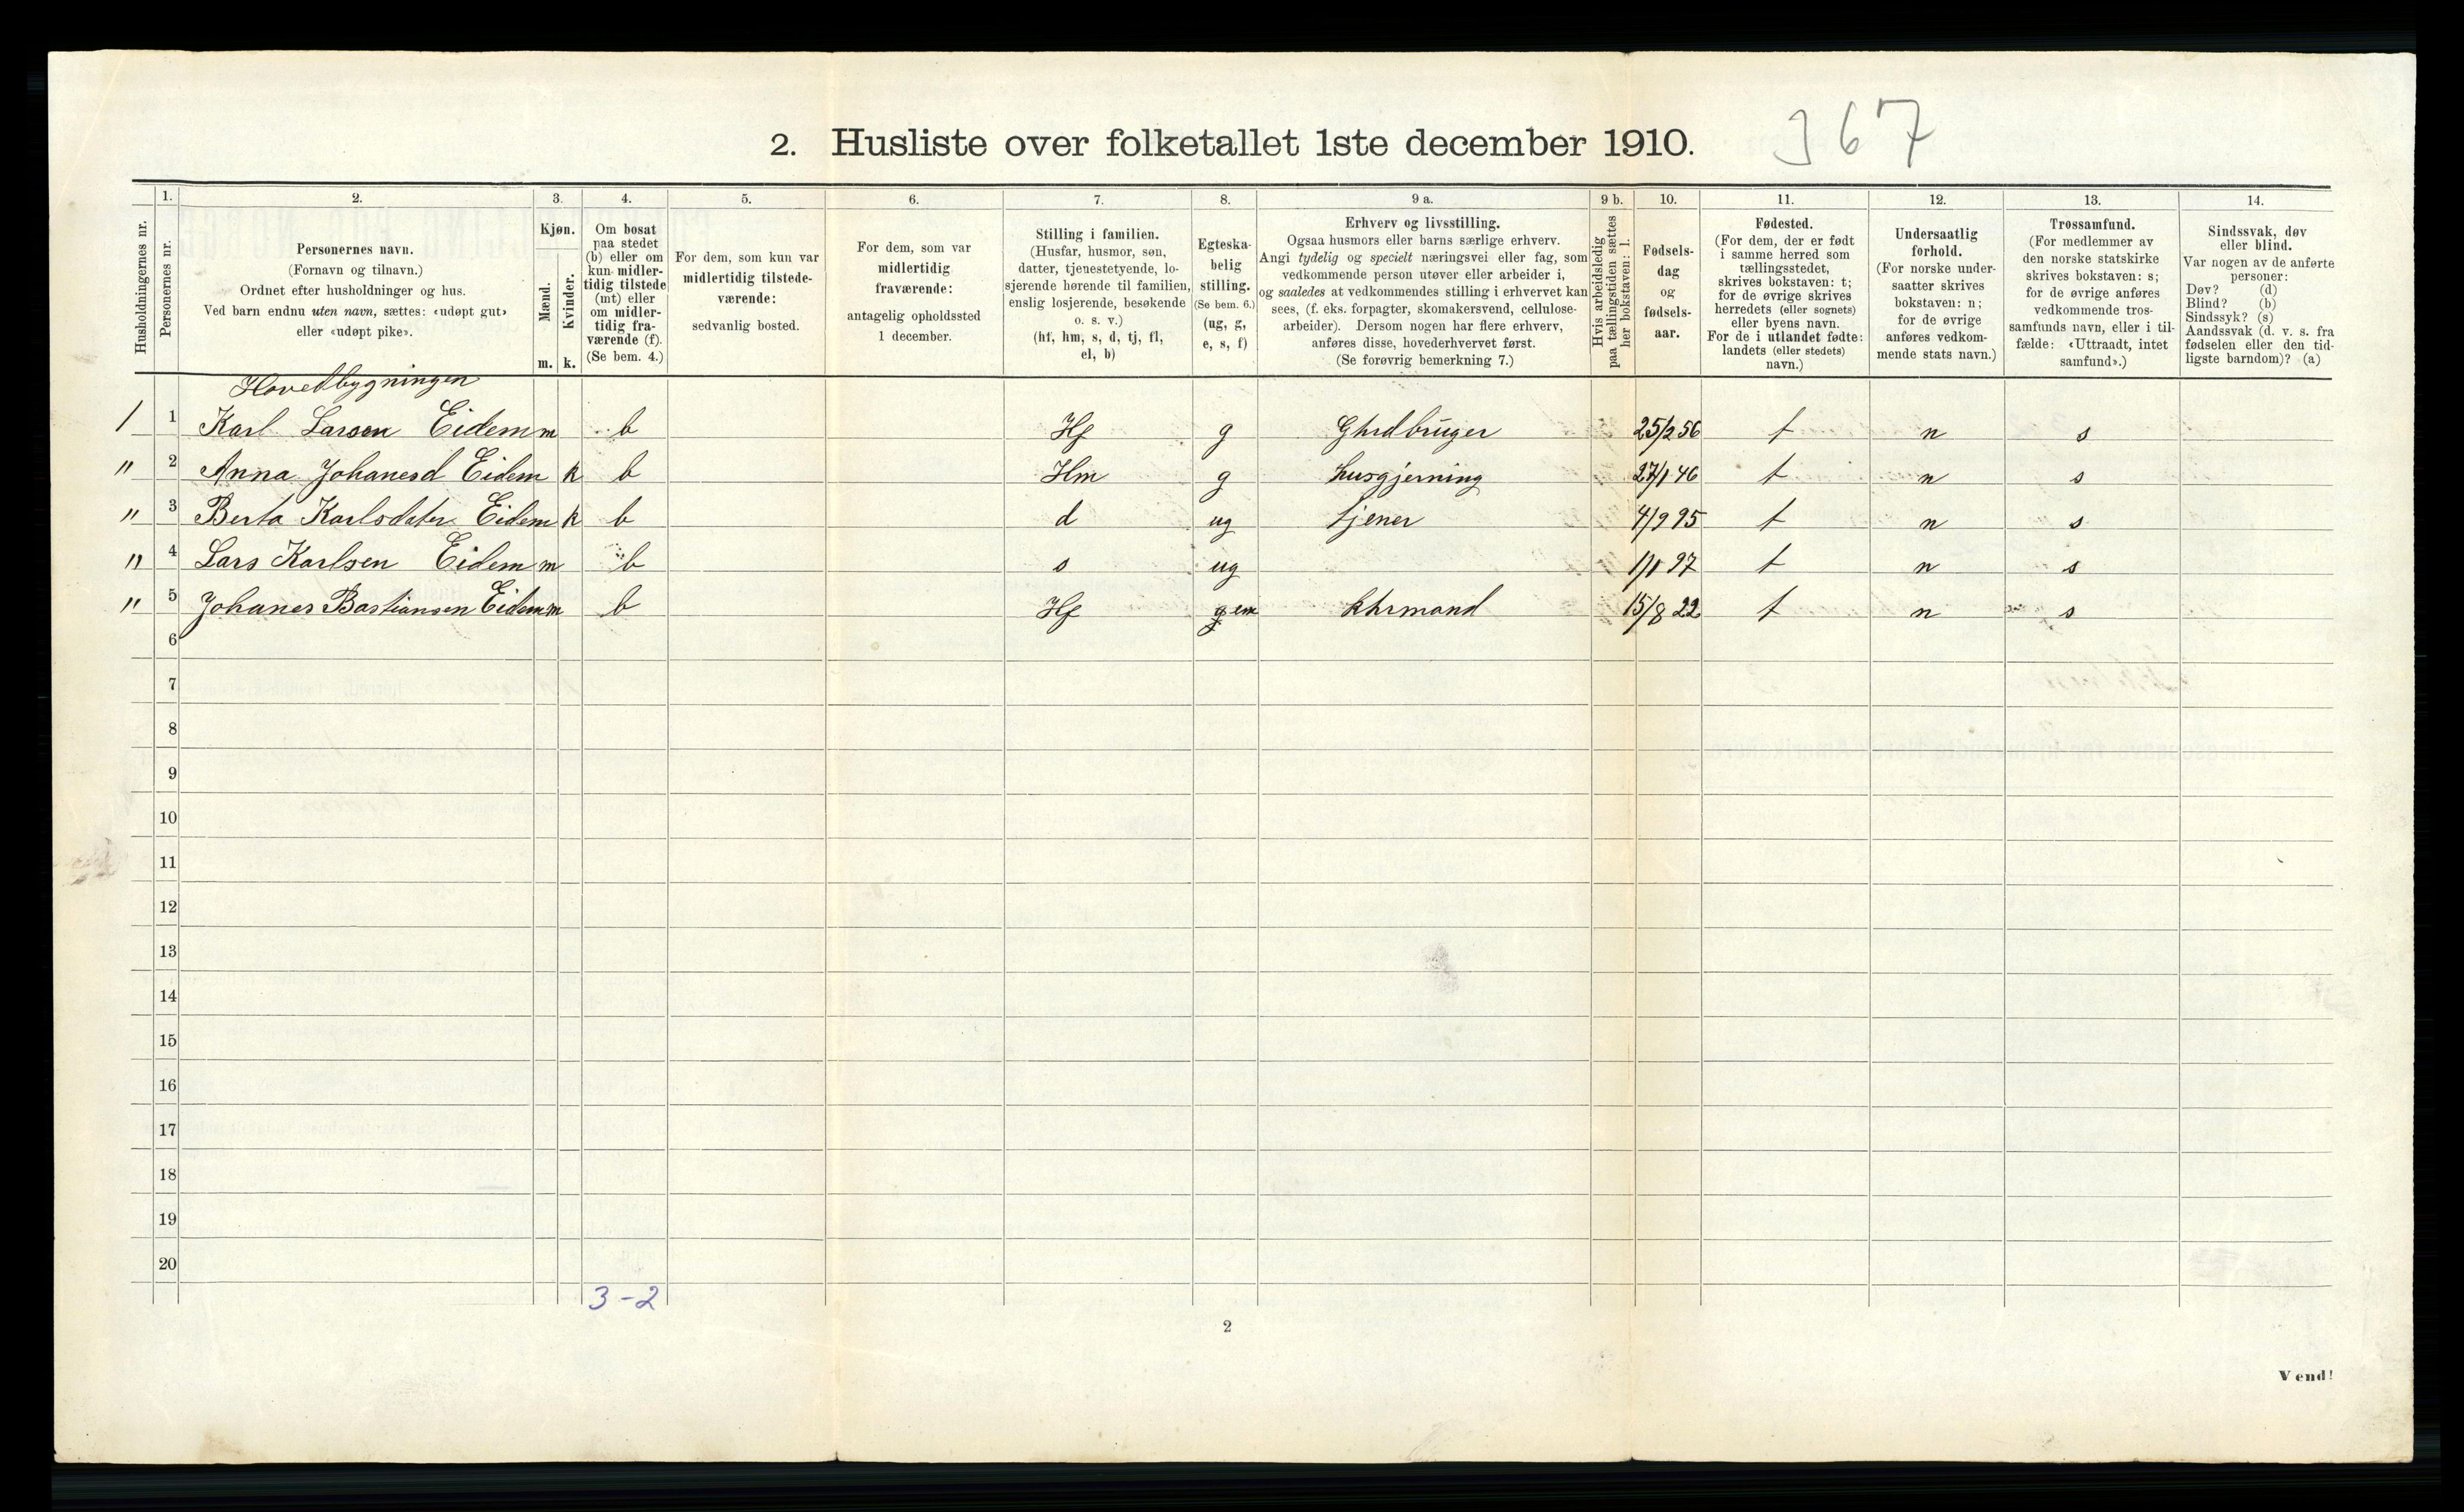 2. Husliste over folketallet 1ste december 1910. 367
1. 2. 3. 4. 5. 6. 7. 8. 9 a. 9 b. 10. 11. 12. 13. 14.
Husholdningernes nr.
Personernes nr.
Personernes navn.
(Fornavn og tilnavn.)
Ordnet efter husholdninger og hus.
Ved barn endnu uten navn, sættes: «udøpt gut»
eller «udøpt pike».
Kjøn.
Mænd.
Kvinder.
m. k.
Om bosat
paa stedet
(b) eller om
kun midler-
tidig tilstede
(mt) eller
om midler-
tidig fra-
værende (f).
(Se bem. 4.)
For dem, som kun var
midlertidig tilstede-
værende:
sedvanlig bosted.
For dem, som var
midlertidig
fraværende:
antagelig opholdssted
1 december.
Stilling i familien.
(Husfar, husmor, søn,
datter, tjenestetyende, lo-
sjerende hørende til familien,
enslig losjerende, besøkende
o. s. v.)
(hf, hm, s, d, tj, fl,
el, b)
Egteska-
belig
stilling.
(Se bem. 6.)
(ug, g,
e, s, f)
Erhverv og livsstilling.
Ogsaa husmors eller barns særlige erhverv.
Angi tydelig og specielt næringsvei eller fag, som
vedkommende person utøver eller arbeider i,
og saaledes at vedkommendes stilling i erhvervet kan
sees, (f. eks. forpagter, skomakersvend, cellulose-
arbeider). Dersom nogen har flere erhverv,
anføres disse, hovederhvervet først.
(Se forøvrig bemerkning 7.)
Hvis arbeidsledig
paa tællingstiden sættes
her bokstaven: l.
Fødsels-
dag
og
fødsels-
aar.
Fødested.
(For dem, der er født
i samme herred som
tællingsstedet,
skrives bokstaven: t;
for de øvrige skrives
herredets (eller sognets)
eller byens navn.
For de i utlandet fødte:
landets (eller stedets)
navn.)
Undersaatlig
forhold.
(For norske under-
saatter skrives
bokstaven: n;
for de øvrige
anføres vedkom-
mende stats navn.)
Trossamfund.
(For medlemmer av
den norske statskirke
skrives bokstaven: s;
for de øvrige anføres
vedkommende tros-
samfunds navn, eller i til-
fælde: «Uttraadt, intet
samfund».)
Sindssvak, døv
eller blind.
Var nogen av de anførte
personer:
Døv? (d)
Blind? (b)
Sindssyk? (s)
Aandssvak (d. v. s. fra
fødselen eller den tid-
ligste barndom)? (a)
Hovedbygningen
1 1 Karl Larsen Eidem m b Hf g Ghrdbruger 25/2 56 t n s
" 2 Anna Johanesd Eidem k b Hm g husgjerning 27/1 46 t n s
" 3 Berta Karlsdater Eidem k b d ug tjener 4/9 95 t n s
" 4 Lars Karlsen Eidem m b s ug 1/1 97 t n s
" 5 Johanes Bastiansen Eidem m b Hf g em khrmand 15/8 22 t n s
6
7
8
9
10
11
12
13
14
15
16
17
18
19
20
3-2
2
Vend!